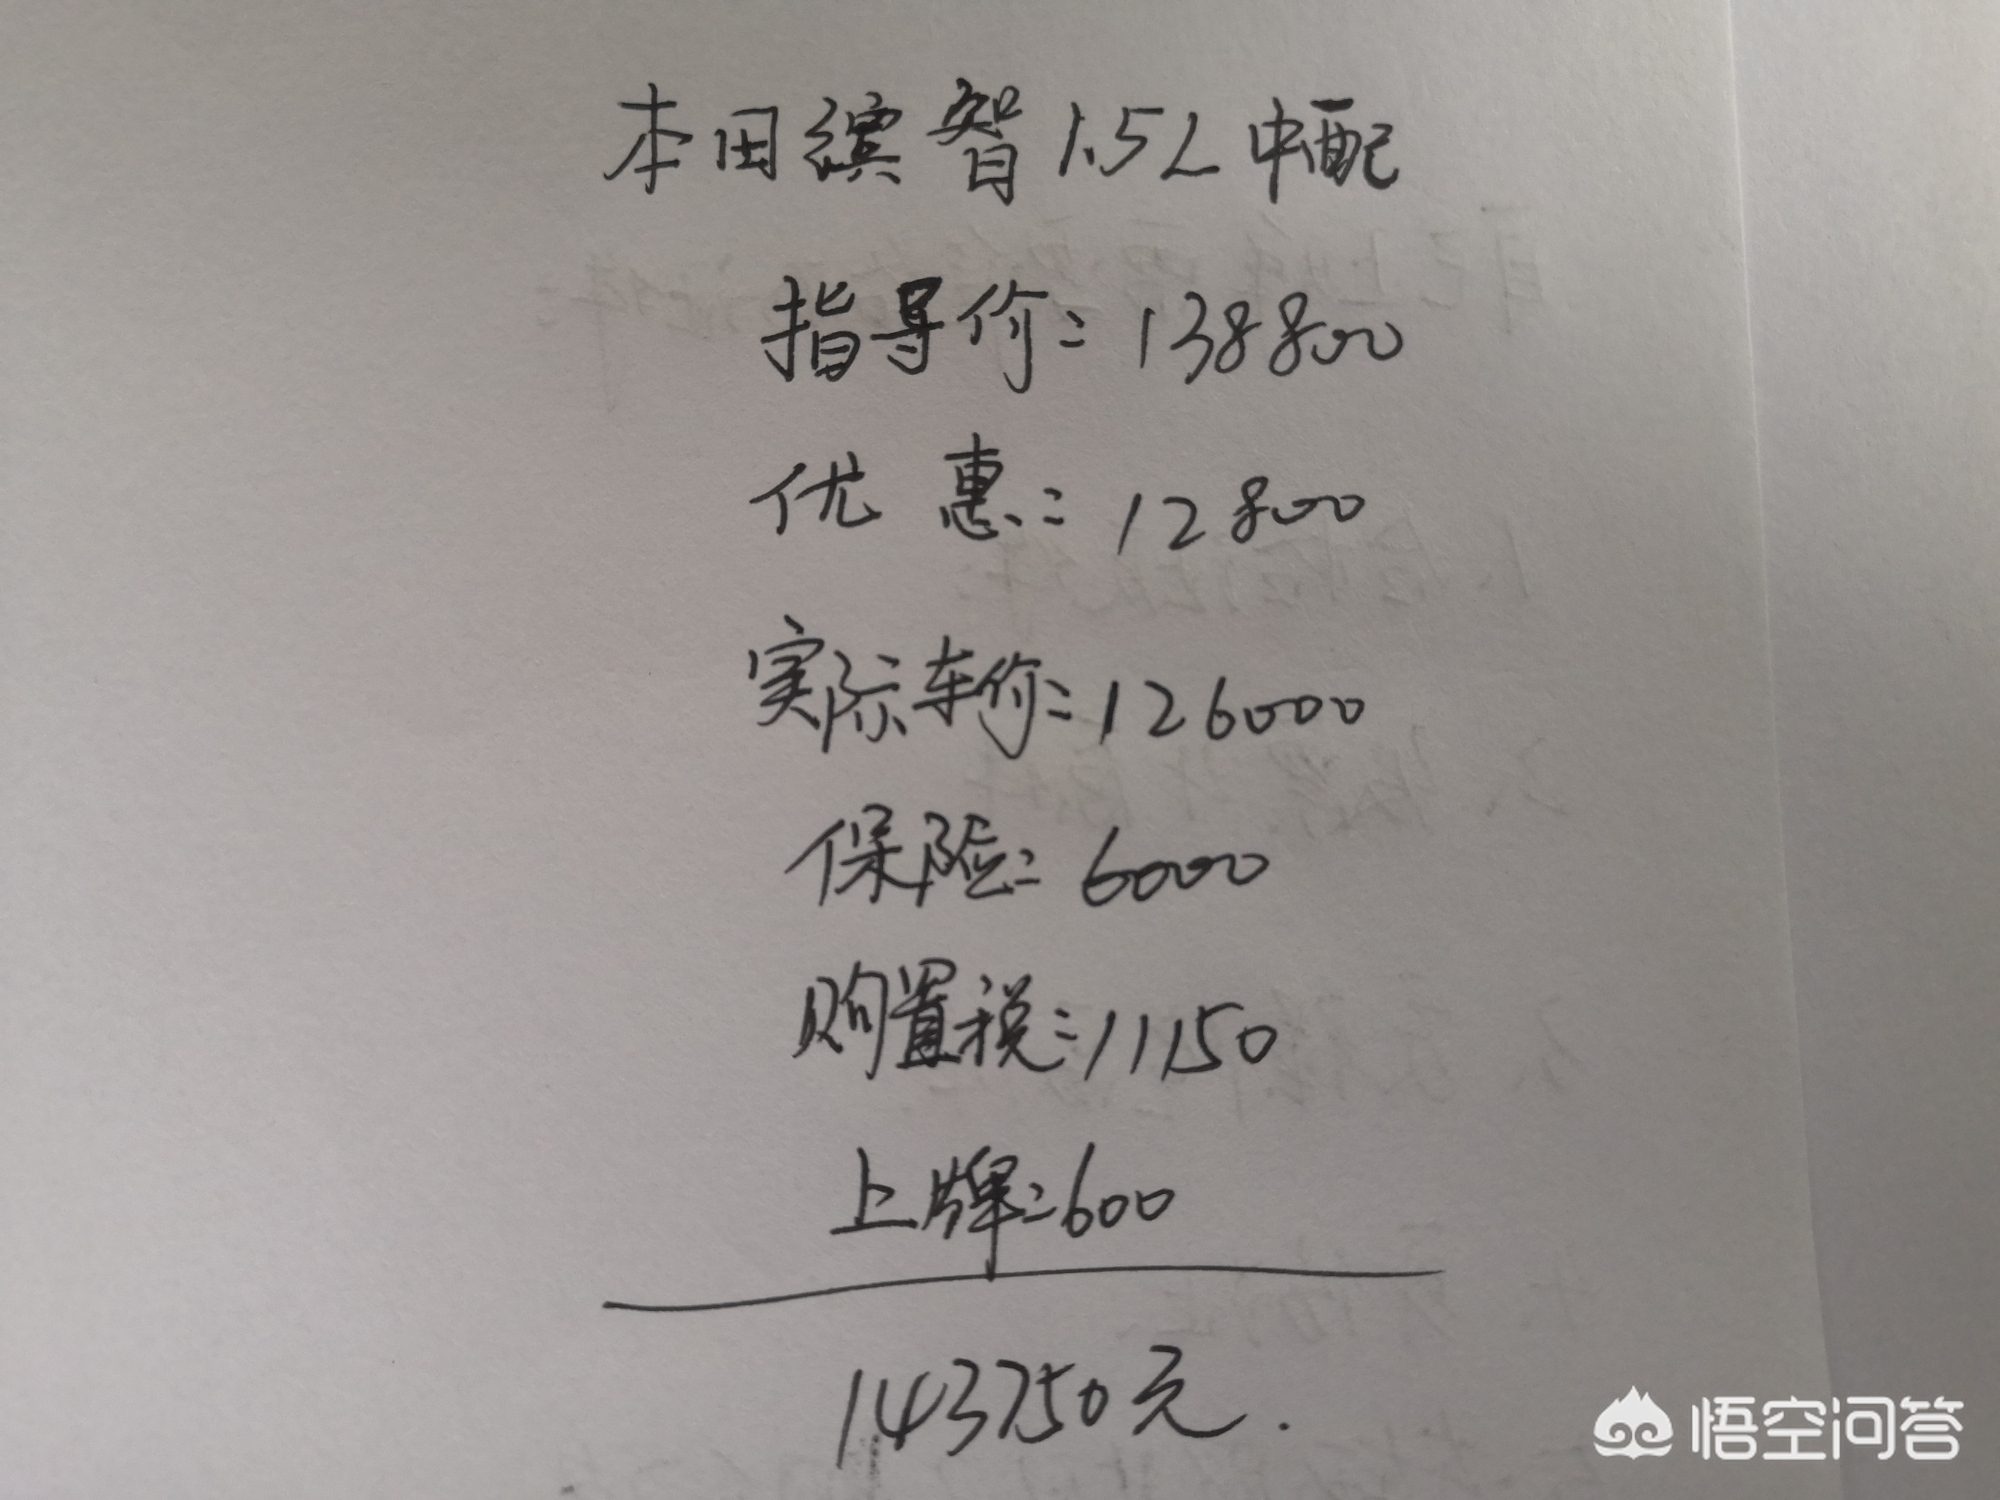 本田缤智1.5L中配
指导价:138800
优惠:12800
实际车价:126000
保险:6000
购置税:11150
上牌:600
143750元.
悟空问答